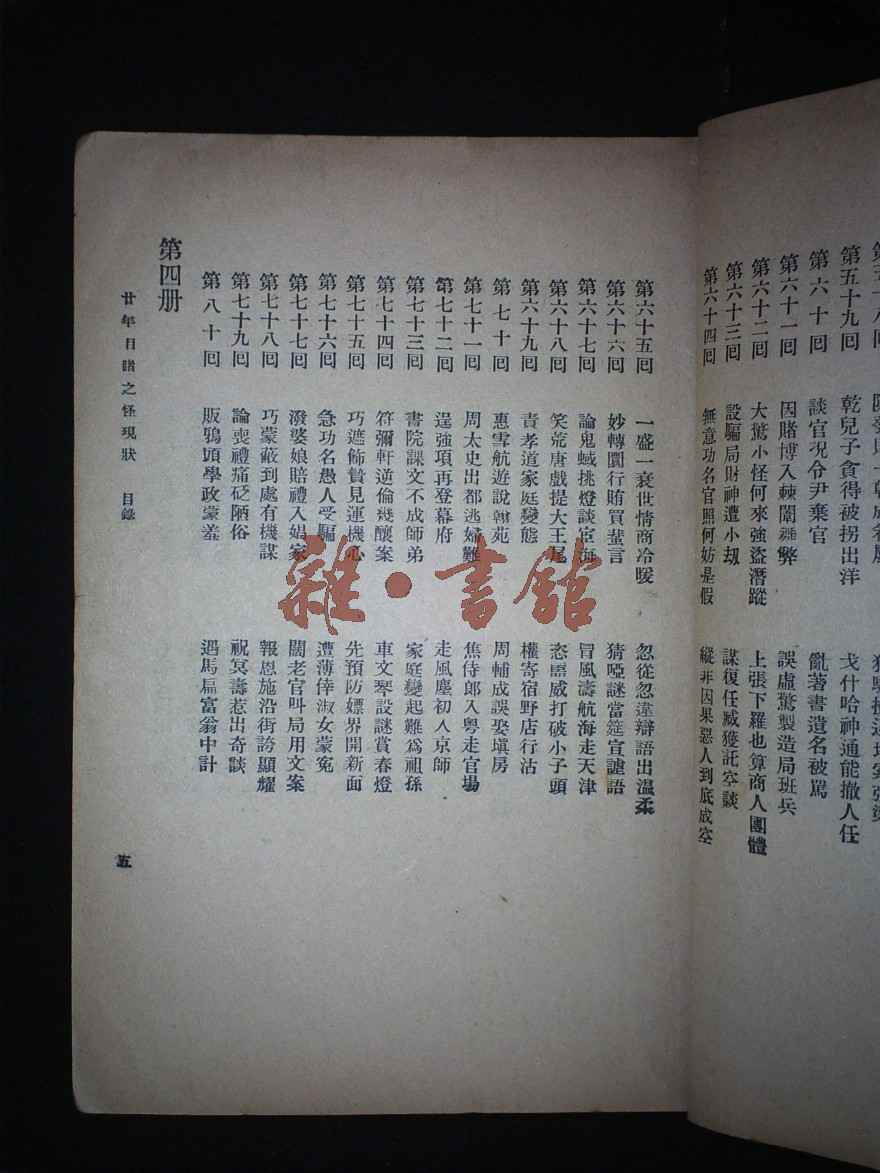 第五十九回 乾兒子貪得被拐出洋 戈什哈神通能撤人任
第六十回 談官況令尹棄官 亂著書遺名被罵
第六十一回 因賭博入棘闈舞弊 誤虛驚製造局班兵
第六十二回 大驚小怪何來強盜潛蹤 上張下羅也算商人團體
第六十三回 設騙局財神遭小刼 謀復任臧獲託空談
第六十四回 無意功名官照何妨是假 縱非因果惡人到底成空
第六十五回 一盛一衰世情商冷暖 忽從忽違辯語出溫柔
第六十六回 妙轉圜行賄買蜚言 猜啞謎當筵宣謔語
第六十七回 論鬼蜮挑燈談宦海 冒風濤航海走天津
第六十八回 笑荒唐戲提大王尾 恣嚚威打破小子頭
第六十九回 責孝道家庭變態 權寄宿野店行沽
第七十回 惠雪航遊說翰苑 周輔成誤娶塡房
第七十一回 周太史出都逃婦難 焦侍郎入粵走官場
第七十二回 逞強項再登幕府 走風塵初入京師
第七十三回 書院課文不成師弟 家庭變起難爲祖孫
第七十四回 符彌軒逆倫幾釀案 車文琴設謎賞春燈
第七十五回 巧遮飾贄見運機心 先預防嫖界開新面
第七十六回 急功名愚人受騙 遭薄倖淑女蒙寃
第七十七回 潑婆娘賠禮入娼家 闊老官叫局用文案
第七十八回 巧蒙蔽到處有機謀 報恩施沿街誇顯耀
第七十九回 論喪禮痛砭陋俗 祝冥壽惹出奇談
第八十回 販鴉頭學政蒙羞 遇馬扁富翁中計
第四册
廿年目睹之怪現狀 目錄
五
雜·書館